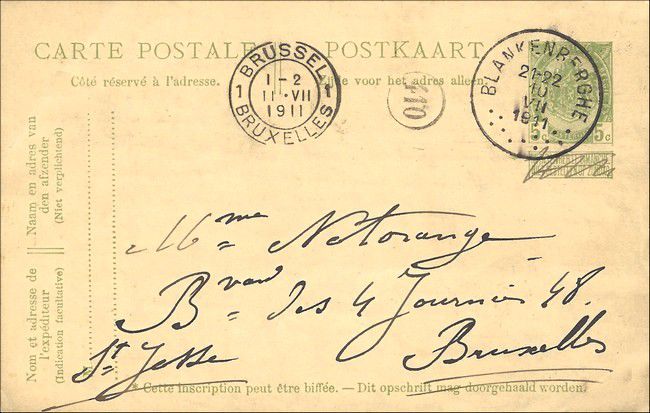 CARTE POSTALE POSTKAART
Côté réservé à l'adresse. Zijde voor het adres alleen
BRUSSEL
1 1
1-2
11·VII
1911
BRUXELLES
410
BLANKENBERGHE
21-22
10
VII
1911
5c 5c
Naam en adres van
den afzender
(Niet verplichtend)
Nom et adresse de
l'expéditeur
(Indication facultative)
Mme Netorange
Bvard des 4 Journées 48.
St Josse Bruxelles
* Cette inscription peut être biffée. — Dit opschrift mag doorgehaald worden.